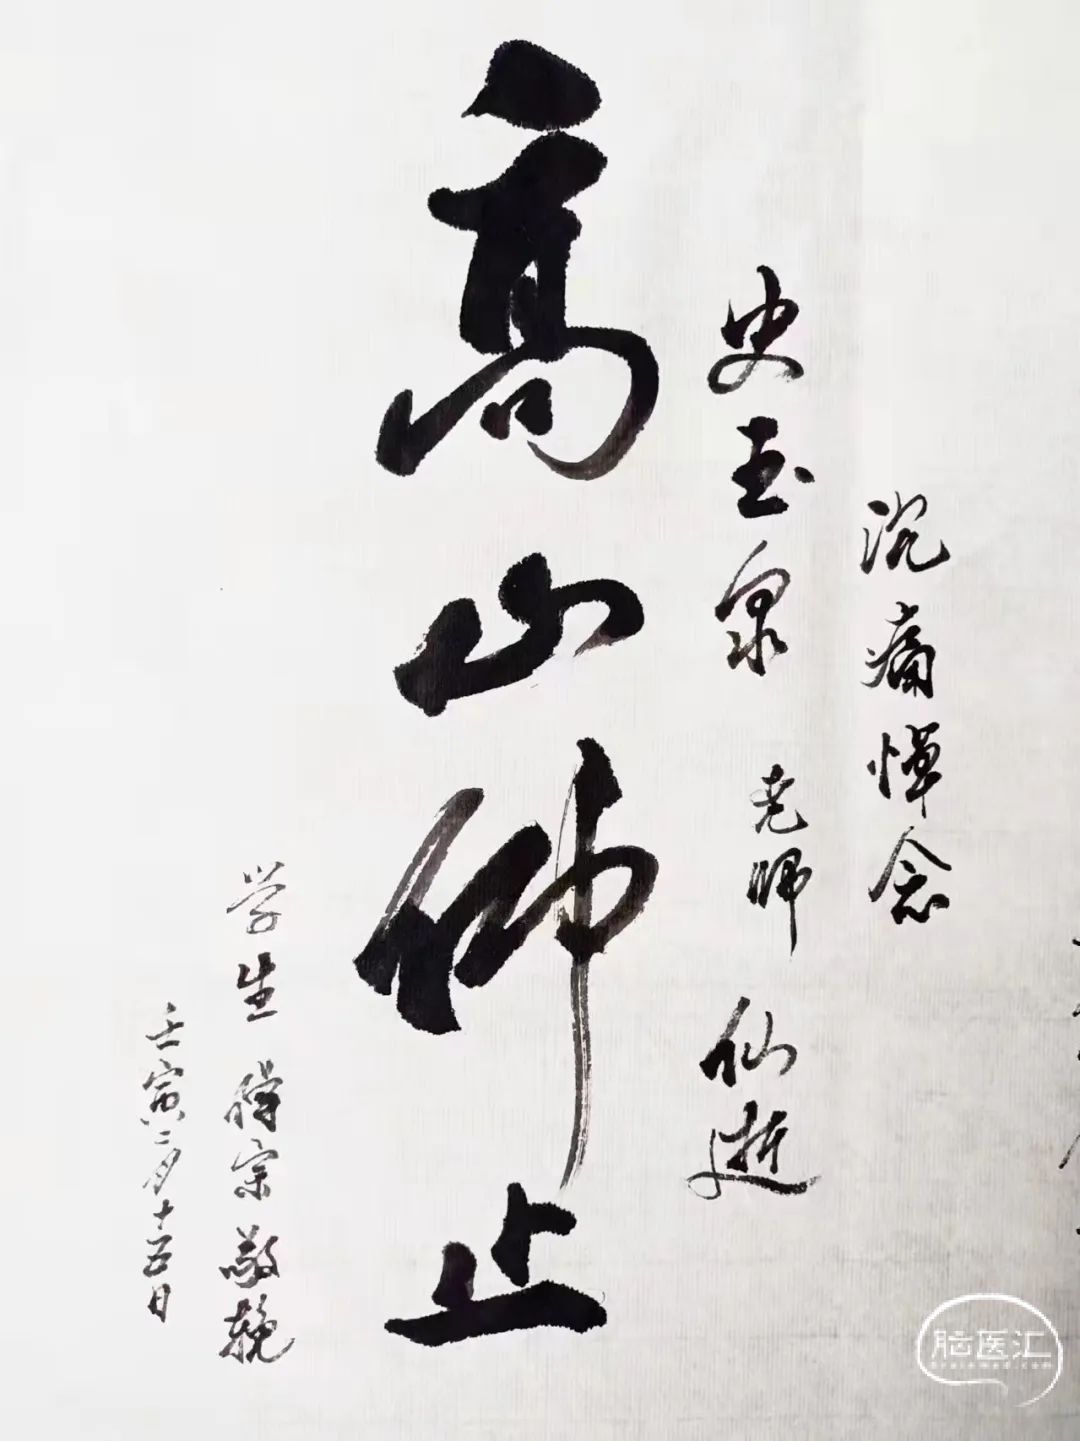 沉痛悼念
史玉泉 老师 仙逝
高山仰止
学生 陈宗敬挽
壬寅二月十五日
脑医汇
brainmed.com